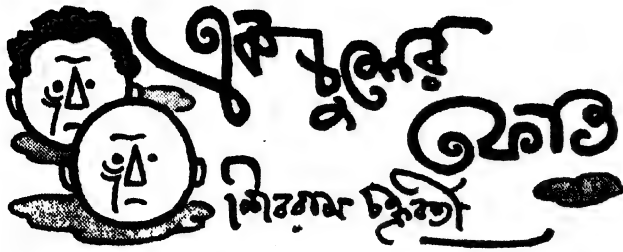 এক চুলের
ফেতি
শিবরাম চক্রবর্তী